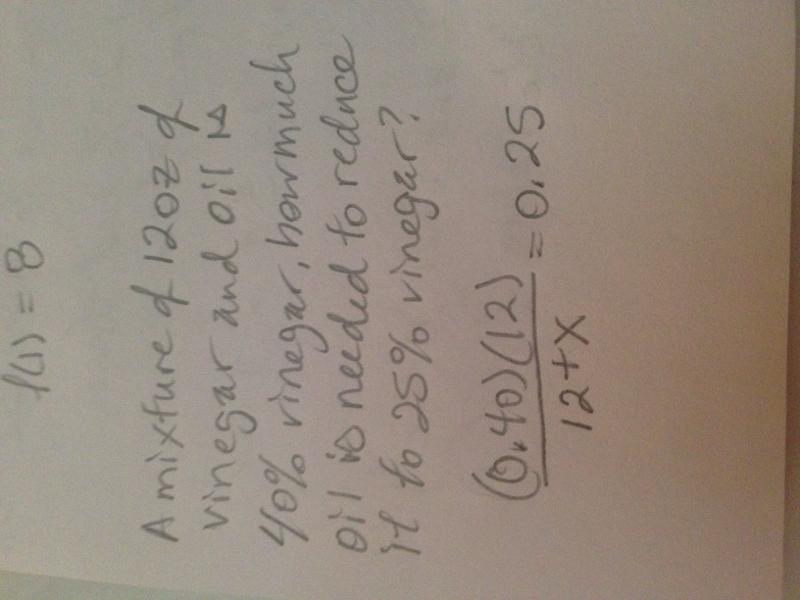 f(1) = 8
A mixture of 12oz of
vinegar and oil is
40% vinegar, how much
oil is needed to reduce
it to 25% vinegar?
(0.40)(12)
12+x
= 0.25